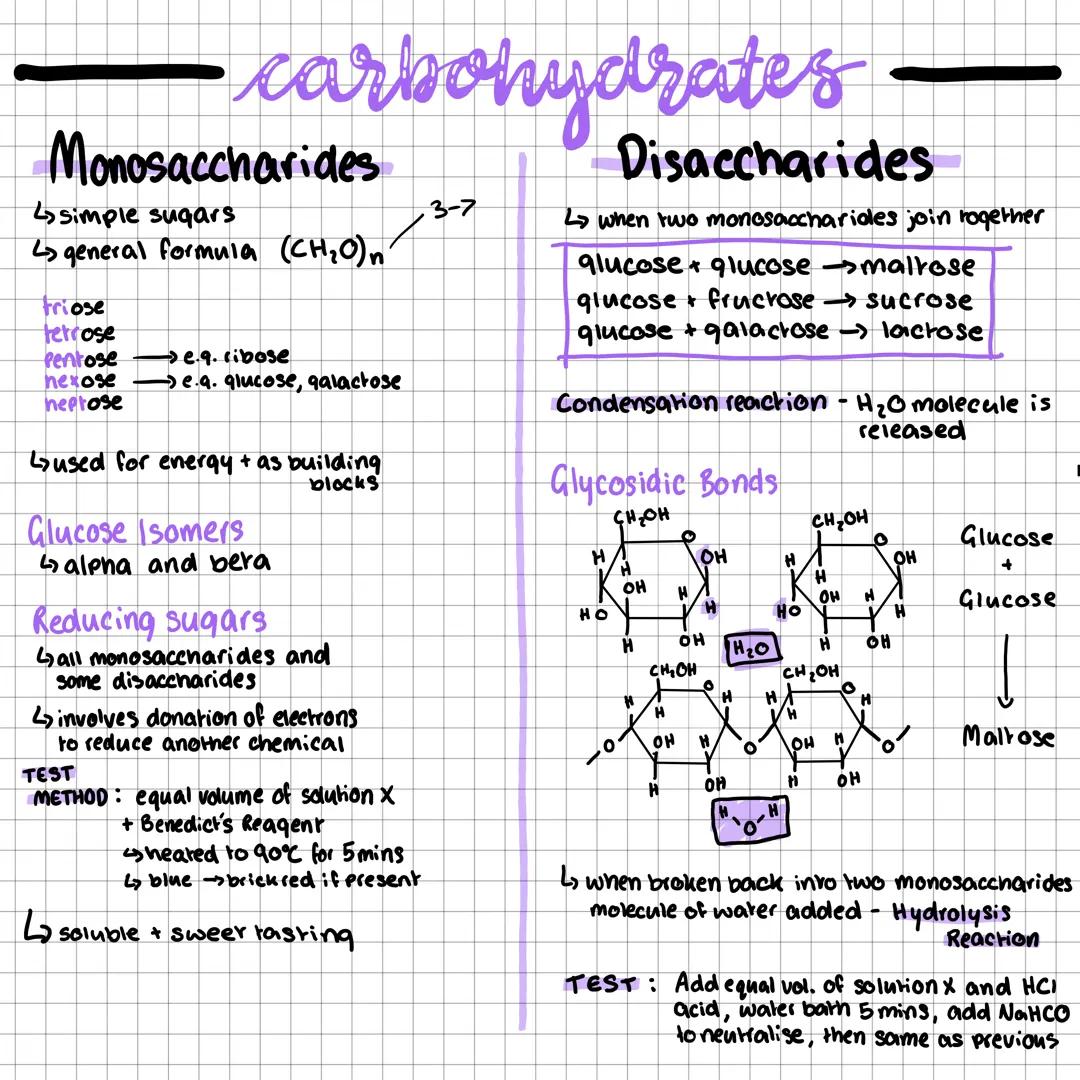 carbohydrates
Monosaccharides
↳ simple sugars
↳ general formula (CH₂O)n 3-7
triose
tetrose
pentose → e.g. ribose
hexose → e.g. glucose, galactose
heptose
↳ used for energy + as building
blocks
Glucose Isomers
↳ alpha and beta
Reducing sugars
↳ all monosaccharides and
some disaccharides
↳ involves donation of electrons
to reduce another chemical
TEST
METHOD: equal volume of solution X
+ Benedict's Reagent
↳ heated to 90°C for 5 mins
↳ blue → brick red if present
↳ soluble + sweet tasting
Disaccharides
↳ when two monosaccharides join together
glucose + glucose → maltose
glucose + fructose → sucrose
glucose + galactose → lactose
Condensation reaction - H₂O molecule is
released
Glycosidic Bonds
CH₂OH CH₂OH
O O
H OH H OH
H H
OH H OH H
HO H HO H
H OH H OH
H₂O
CH₂OH CH₂OH
O O
H H H H
H H
O OH H O OH H O
H OH H OH
H H
O
Glucose
+
Glucose
↓
Maltose
↳ when broken back into two monosaccharides
molecule of water added - Hydrolysis
Reaction
TEST: Add equal vol. of solution X and HCl
acid, water bath 5 mins, add NaHCO
to neutralise, then same as previous